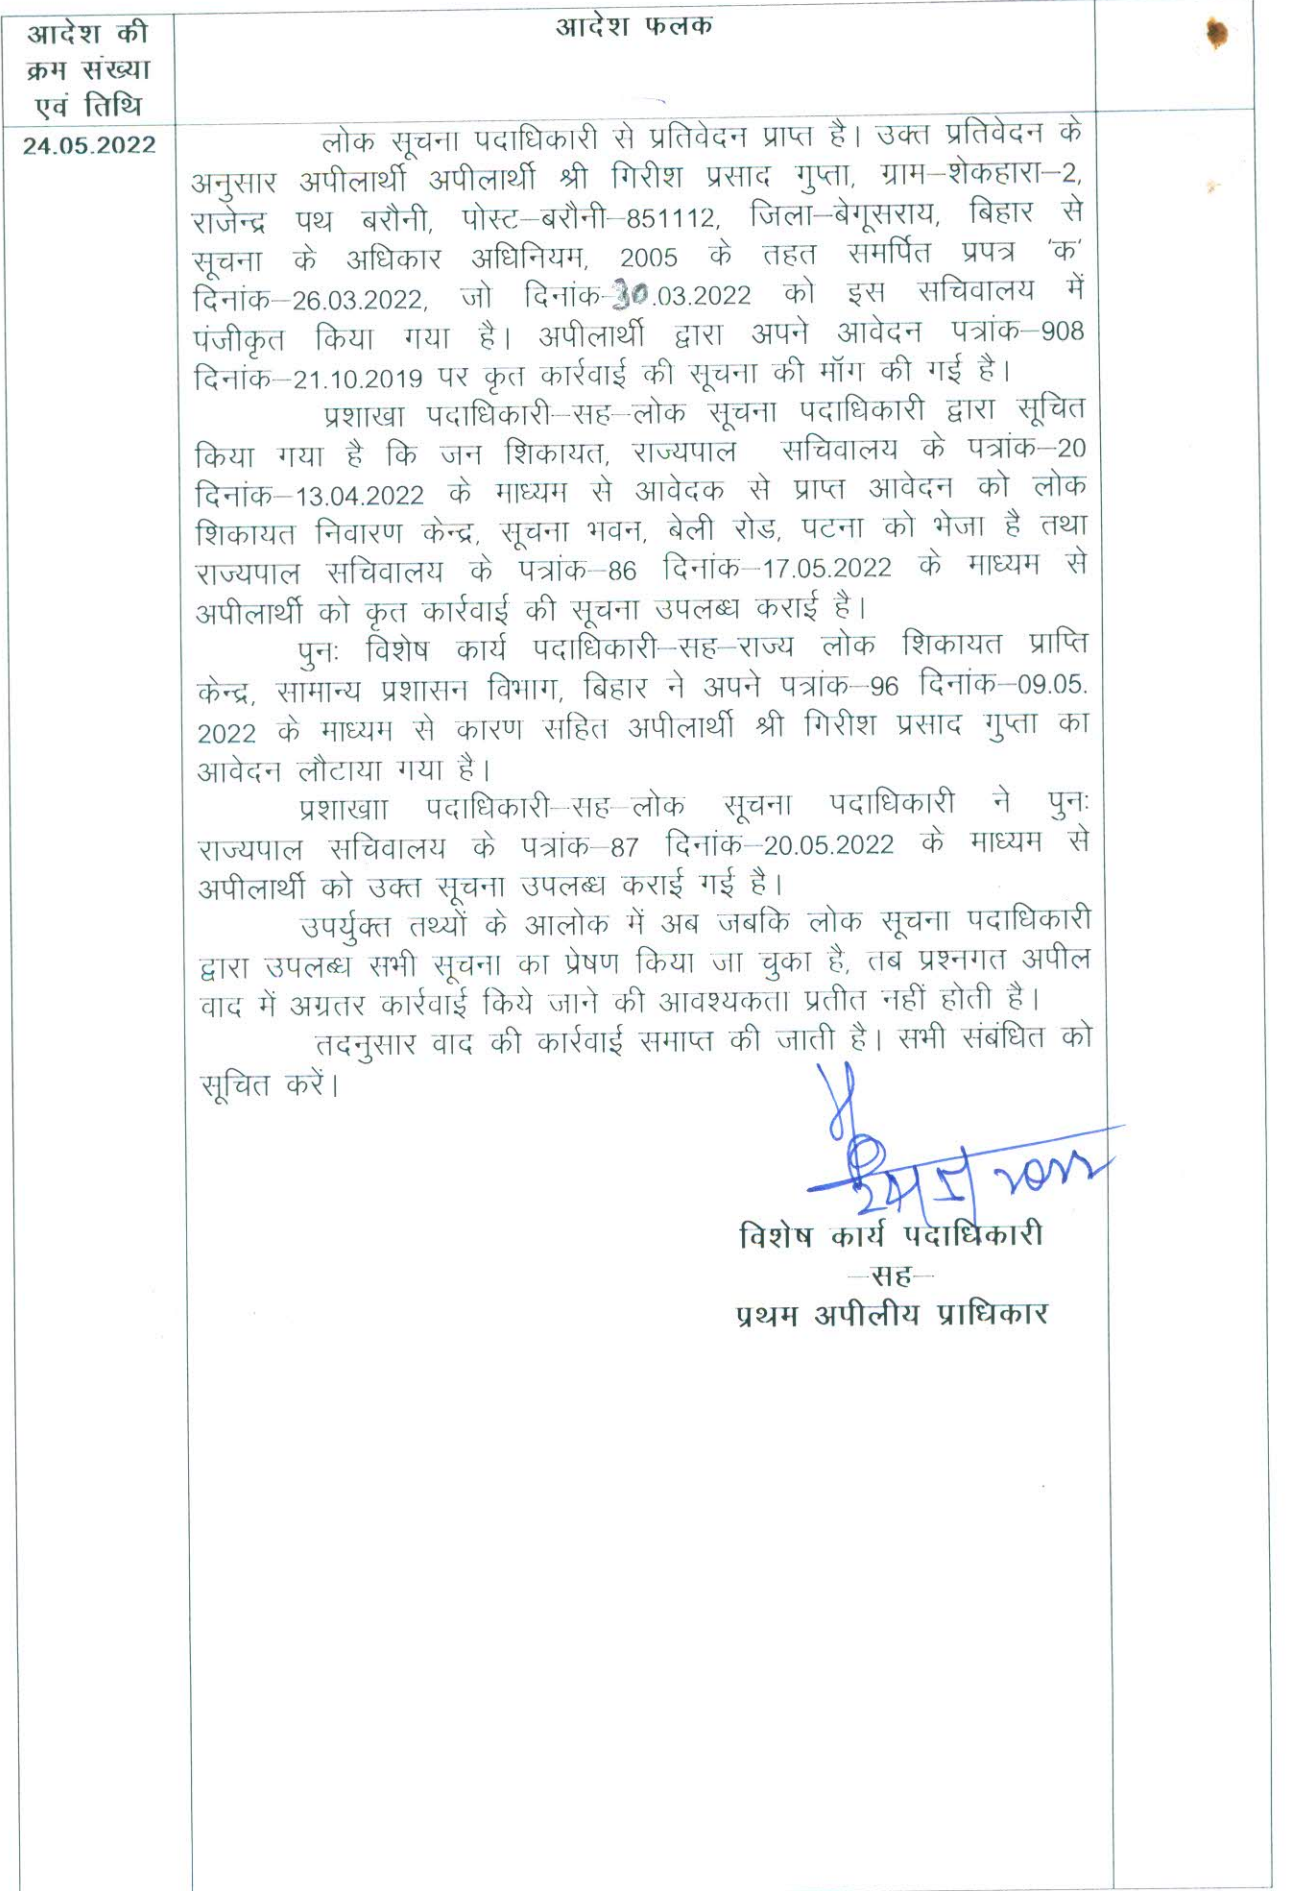 आदेश की
क्रम संख्या
एवं तिथि
आदेश फलक
24.05.2022
लोक सूचना पदाधिकारी से प्रतिवेदन प्राप्त है। उक्त प्रतिवेदन के
अनुसार अपीलार्थी अपीलार्थी श्री गिरीश प्रसाद गुप्ता, ग्राम–शेकहारा–2,
राजेन्द्र पथ बरौनी, पोस्ट–बरौनी–851112, जिला–बेगूसराय, बिहार से
सूचना के अधिकार अधिनियम, 2005 के तहत समर्पित प्रपत्र 'क'
दिनांक–26.03.2022, जो दिनांक-30.03.2022 को इस सचिवालय में
पंजीकृत किया गया है। अपीलार्थी द्वारा अपने आवेदन पत्रांक–908
दिनांक–21.10.2019 पर कृत कार्रवाई की सूचना की मॉग की गई है।
प्रशाखा पदाधिकारी–सह–लोक सूचना पदाधिकारी द्वारा सूचित
किया गया है कि जन शिकायत, राज्यपाल सचिवालय के पत्रांक–20
दिनांक–13.04.2022 के माध्यम से आवेदक से प्राप्त आवेदन को लोक
शिकायत निवारण केन्द्र, सूचना भवन, बेली रोड, पटना को भेजा है तथा
राज्यपाल सचिवालय के पत्रांक–86 दिनांक–17.05.2022 के माध्यम से
अपीलार्थी को कृत कार्रवाई की सूचना उपलब्ध कराई है।
पुनः विशेष कार्य पदाधिकारी–सह–राज्य लोक शिकायत प्राप्ति
केन्द्र, सामान्य प्रशासन विभाग, बिहार ने अपने पत्रांक–96 दिनांक–09.05.
2022 के माध्यम से कारण सहित अपीलार्थी श्री गिरीश प्रसाद गुप्ता का
आवेदन लौटाया गया है।
प्रशाखाा पदाधिकारी–सह–लोक सूचना पदाधिकारी ने पुनः
राज्यपाल सचिवालय के पत्रांक–87 दिनांक–20.05.2022 के माध्यम से
अपीलार्थी को उक्त सूचना उपलब्ध कराई गई है।
उपर्युक्त तथ्यों के आलोक में अब जबकि लोक सूचना पदाधिकारी
द्वारा उपलब्ध सभी सूचना का प्रेषण किया जा चुका है, तब प्रश्नगत अपील
वाद में अग्रतर कार्रवाई किये जाने की आवश्यकता प्रतीत नहीं होती है।
तदनुसार वाद की कार्रवाई समाप्त की जाती है। सभी संबंधित को
सूचित करें।
विशेष कार्य पदाधिकारी
–सह–
प्रथम अपीलीय प्राधिकार